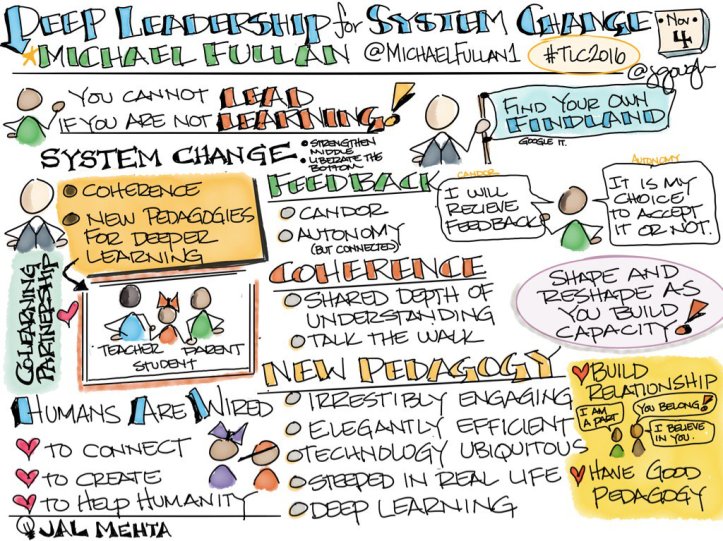 DEEP LEADERSHIP for SYSTEM CHANGE
NOV
4
MICHAEL FULLAN @MICHAELFULLAN1 #TLC2016
@jgough
YOU CANNOT LEAD
IF YOU ARE NOT LEARNING!
FIND YOUR OWN
FINDLAND
GOOGLE IT.
SYSTEM CHANGE.
• STRENGTHEN
MIDDLE
LIBERATE THE
BOTTOM
COHERENCE
NEW PEDAGOGIES
FOR DEEPER
LEARNING
CO-LEARNING
PARTNERSHIP
TEACHER PARENT
STUDENT
FEEDBACK
CANDOR
AUTONOMY
(BUT CONNECTED)
CANDOR
I WILL
RECIEVE
FEEDBACK
AUTONOMY
IT IS MY
CHOICE
TO ACCEPT
IT OR NOT.
COHERENCE
SHARED DEPTH OF
UNDERSTANDING
TALK THE WALK
SHAPE AND
RESHAPE AS
YOU BUILD
CAPACITY!
NEW PEDAGOGY
IRRESTIBLY ENGAGING
ELEGANTLY EFFICIENT
TECHNOLOGY UBIQUITOUS
STEEPED IN REAL LIFE
DEEP LEARNING
BUILD
RELATIONSHIP
I AM
A PART
YOU BELONG!
I BELIEVE
IN YOU.
HAVE GOOD
PEDAGOGY
HUMANS ARE WIRED
TO CONNECT
TO CREATE
TO HELP HUMANITY
JAL MEHTA